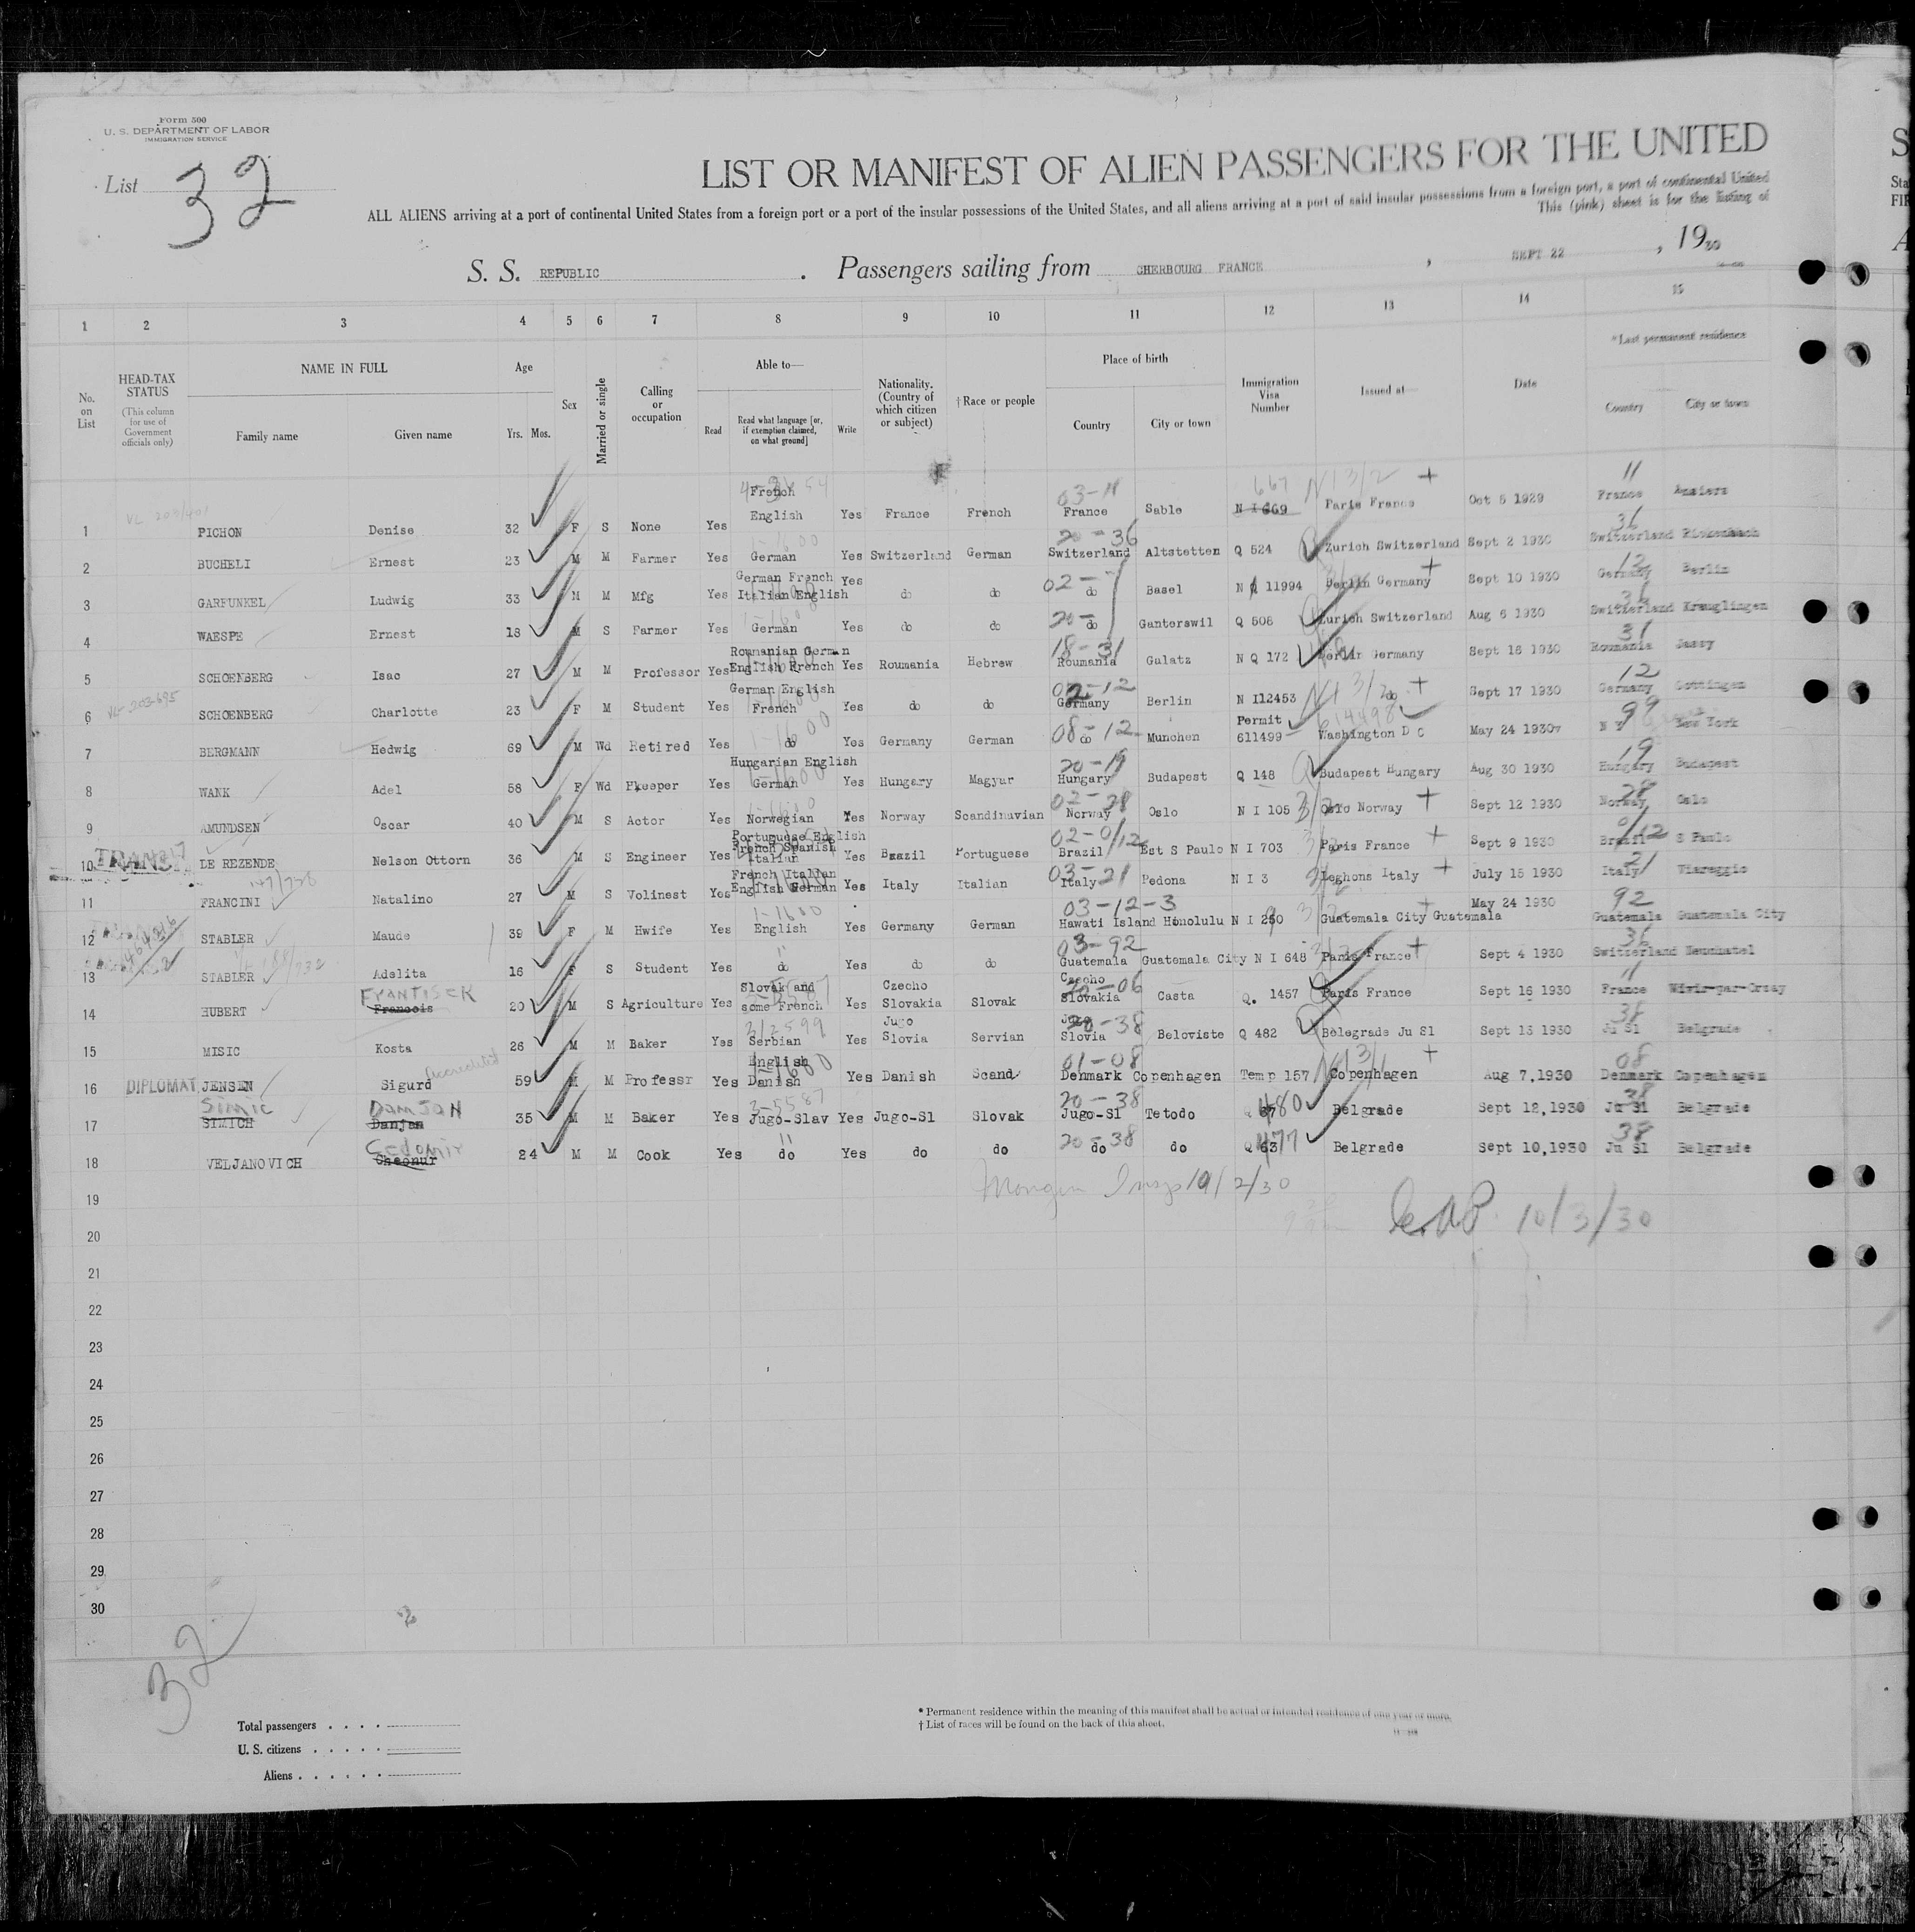 Form 500
U. S. DEPARTMENT OF LABOR
IMMIGRATION SERVICE
List 32
LIST OR MANIFEST OF ALIEN PASSENGERS FOR THE UNITED
ALL ALIENS arriving at a port of continental United States from a foreign port or a port of the insular possessions of the United States, and all aliens arriving at a port of said insular possessions from a foreign port, a port of continental United
This (pink) sheet is for the listing of
S. S. REPUBLIC . Passengers sailing from CHERBOURG FRANCE , SEPT 22 , 1930
1 2 3 4 5 6 7 8 9 10 11 12 13 14 15
No. on List
HEAD-TAX STATUS
(This column for use of Government officials only)
NAME IN FULL
Family name Given name
Age
Yrs. Mos.
Sex
Married or single
Calling or occupation
Able to—
Read
Read what language [or, if exemption claimed, on what ground]
Write
Nationality. (Country of which citizen or subject)
†Race or people
Place of birth
Country City or town
Immigration Visa Number
Issued at—
Date
*Last permanent residence
Country City or town
1 PICHON Denise 32 F S None Yes French English Yes France French 03-11 France Sable 667 N I 669 Paris France Oct 5 1929 11 France
2 BUCHELI Ernest 23 M M Farmer Yes German Yes Switzerland German 20-36 Switzerland Altstetten Q 524 Zurich Switzerland Sept 2 1930 36 Switzerland
3 GARFUNKEL Ludwig 33 M M Mfg Yes German French Italian English Yes do do 02- do Basel N 11994 Berlin Germany Sept 10 1930 12 Germany Berlin
4 WAESPE Ernest 18 M S Farmer Yes German Yes do do 20- do Ganterswil Q 508 Zurich Switzerland Aug 6 1930 36 Switzerland Kreuglingen
5 SCHOENBERG Isac 27 M M Professor Yes Roumanian German English French Yes Roumania Hebrew 18-31 Roumania Galatz N Q 172 Berlin Germany Sept 16 1930 31 Roumania Jassy
6 SCHOENBERG Charlotte 23 F M Student Yes German English French Yes do do 02-12 Germany Berlin N I12453 do Sept 17 1930 12 Germany Gottingen
7 BERGMANN Hedwig 69 M Wd Retired Yes do Yes Germany German 08-12 do Munchen Permit 611499 614498 Washington D C May 24 1930 99 N Y New York
8 WANK Adel 58 F Wd Pkeeper Yes Hungarian English German Yes Hungary Magyar 20-19 Hungary Budapest Q 148 Budapest Hungary Aug 30 1930 19 Hungary Budapest
9 AMUNDSEN Oscar 40 M S Actor Yes Norwegian Yes Norway Scandinavian 02-28 Norway Oslo N I 105 Oslo Norway Sept 12 1930 28 Norway Oslo
10 TRANSIT LE REZENDE Nelson Ottorn 36 M S Engineer Yes Portuguese English French Spanish Italian Yes Brazil Portuguese 02-0/12 Brazil Est S Paulo N I 703 Paris France Sept 9 1930 0/12 Brazil S Paulo
11 FRANCINI Natalino 27 M S Volinest Yes French Italian English German Yes Italy Italian 03-21 Italy Pedona N I 3 Leghons Italy July 15 1930 21 Italy Viareggio
12 STABLER Maude 39 F M Hwife Yes English Yes Germany German 03-12-3 Hawati Island Honolulu N I 250 Guatemala City Guatemala May 24 1930 92 Guatemala Guatemala City
13 STABLER Adelita 16 F S Student Yes do Yes do do 03-92 Guatemala Guatemala City N I 648 Paris France Sept 4 1930 36 Switzerland Neuchatel
14 HUBERT FRANTISEK Francois 20 M S Agriculture Yes Slovak and some French Yes Czecho Slovakia Slovak 20-06 Czecho Slovakia Casta Q. 1457 Paris France Sept 16 1930 11 France
15 MISIC Kosta 26 M M Baker Yes Serbian Yes Jugo Slovia Servian 20-38 Jugo Slovia Beloviste Q 482 Belegrade Ju Sl Sept 13 1930 38 Ju Sl Belgrade
16 DIPLOMAT JENSEN Sigurd Accredited 59 M M Professr Yes English Danish Yes Danish Scand 01-08 Denmark Copenhagen Temp 157 Copenhagen Aug 7,1930 08 Denmark Copenhagen
17 SIMIC SIMICH DAMJAN Danjan 35 M M Baker Yes 3-5587 Jugo-Slav Yes Jugo-Sl Slovak 20-38 Jugo-Sl Tetodo Q 480 Belgrade Sept 12,1930 38 Ju Sl Belgrade
18 VELJANOVICH Cedomir Cheonur 24 M M Cook Yes do Yes do do 20-38 do do Q 477 Belgrade Sept 10,1930 38 Ju Sl Belgrade
19 10/2/30
20 10/3/30
21
22
23
24
25
26
27
28
29
30
32
Total passengers . . . .
U. S. citizens . . . . .
Aliens . . . . . .
* Permanent residence within the meaning of this manifest shall be actual or intended residence of one year or more.
† List of races will be found on the back of this sheet.